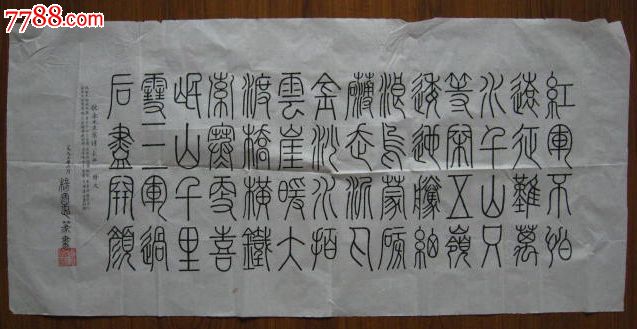 7788.com
中国收藏热线
紅軍不怕
遠征難萬
水千山只
等閑五嶺
逶迤騰細
浪烏蒙磅
礴走泥丸
金沙水拍
雲崖暖大
渡橋橫鐵
索寒更喜
岷山千里
雪三軍過
后盡開顏